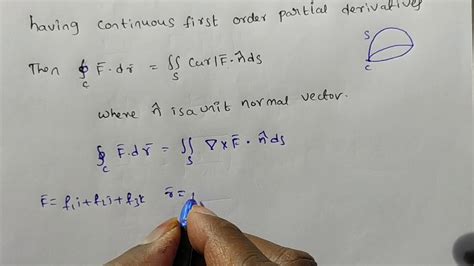 having continuous first order partial derivatives
Then ∮_C F̄·dr̄ = ∬_S Curl F̄·n̂ ds
S
C
where n̂ is a unit normal vector.
∮_C F̄·dr̄ = ∬_S ∇×F̄·n̂ ds
F̄ = f₁i + f₂j + f₃k r̄ =